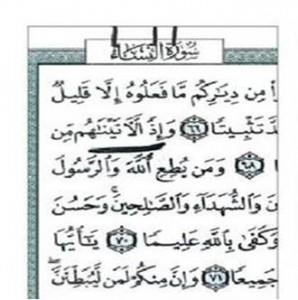 سُورَةُ النِّسَاءِ
مِن دِيَٰرِكُم مَّا فَعَلُوهُ إِلَّا قَلِيلٌ
تَثْبِيتًا ٦٦ وَإِذًا لَّآتَيْنَٰهُم مِّن
٦٨ وَمَن يُطِعِ ٱللَّهَ وَٱلرَّسُولَ
وَٱلشُّهَدَآءِ وَٱلصَّٰلِحِينَ ۚ وَحَسُنَ
وَكَفَىٰ بِٱللَّهِ عَلِيمًا ٧٠ يَٰٓأَيُّهَا
جَمِيعًا ٧١ وَإِنَّ مِنكُمْ لَمَن لَّيُبَطِّئَنَّ ۖ